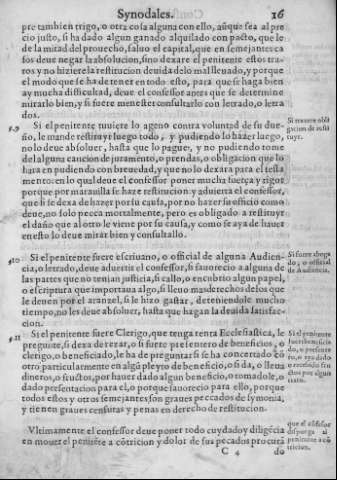 Synodales. 16
pre tambien trigo, o otra cosa alguna con ello, aũque sea al pre
cio justo, si ha dado algun ganado alquilado con pacto, que le
de la mitad del prouecho, saluo el capital, que en semejantes ca
sos deue negar la absolucion, sino dexare el penitente estos tra-
tos y no hiziere la restitucion deuida de lo mal lleuado, y porque
el modo que se ha de tener en todo esto, para que se haga bien
ay mucha difficultad, deue el confessor antes que se determine
mirarlo bien, y si fuere menester consultarlo con letrado, o letra
dos.
Si el penitente tuuiere lo ageno contra voluntad de su due-
ño, le mande restituyr luego todo, y pudiendo lo hazer luego,
no lo deue absoluer, hasta que lo pague, y no pudiendo tome
del alguna caucion de juramento, o prendas, o obligacion que lo
hara en pudiendo con breuedad, y que no lo dexara para el testa
mento: en lo qual deue el confessor poner mucha fuerça y rigor
porque por marauilla se haze restitucion: y aduierta el confessor,
que si se dexa de hazer por su causa, por no hazer su officio como
deue, no solo pecca mortalmente, pero es obligado a restituyr
el daño que al otro le viene por su causa, y como se aya de hauer
en esto lo deue mirar bien y consultallo.
Si tuuiere obli
gacion de resti
tuyr.
Si el penitente fuere escriuano, o official de alguna Audien-
cia, o letrado, deue aduertir el confessor, si fauorecio a alguna de
las partes que no tenian justicia, si callo, o encubrio algun papel,
o escriptura que importaua algo, si lleuo mas derechos delos que
le deuen por el aranzel, si le hizo gastar, deteniendole mucho
tiempo, no les deue absoluer, hasta que hagan la deuida satisfac-
cion.
Si fuere aboga
do, o official
de Audiencia.
Si el penitente fuere Clerigo, que tenga renta Ecclesiastica, le
pregunte, si dexa de rezar, o si fuere presentero de beneficios, o
clerigo, o beneficiado, le ha de preguntar si se ha concertado cõ
otro particularmente en algũ pleyto de beneficio, o si da, o lleua
dineros, o fructos, por hauer dado algun beneficio, o tomadole, o
dado presentacion para el, o porque fauorecio para ello, porque
todos estos y otros semejantes son graues peccados de symonia,
y tienen graues censuras y penas en derecho de restitucion.
Si el penitente
Vltimamente el confessor deue poner todo cuydado y diligẽcia
en mouer el penitẽte a cõtricion y dolor de sus pecados procurã
que el cõfessor
disponga al
penitente a cõ
tricion.
C 4 do